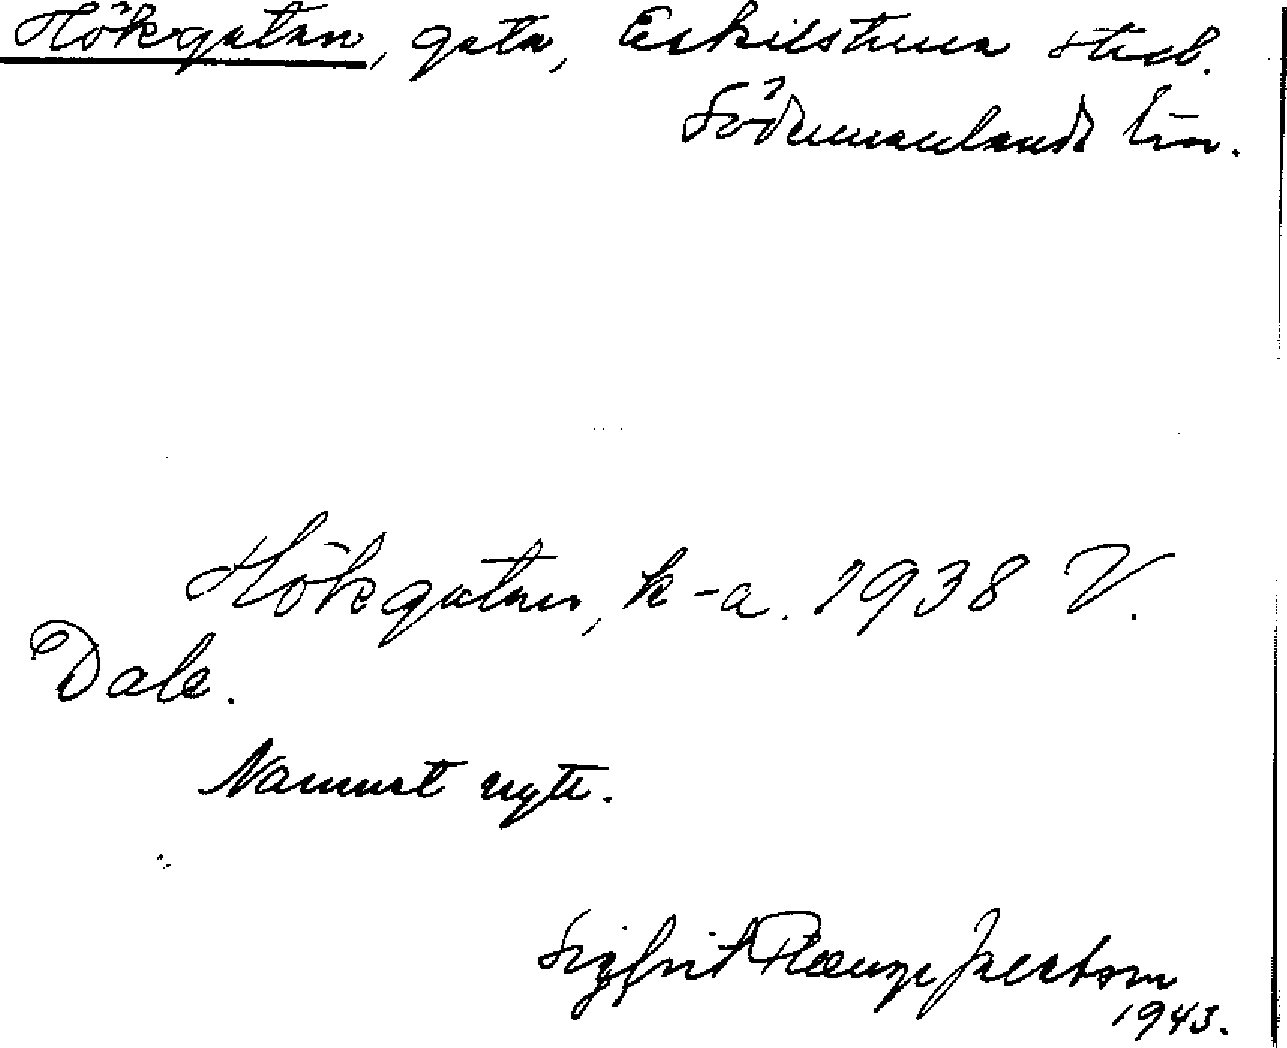 Hökgatan, gata, Eskilstuna stad.
Södermanlands län.
Hökgatan, k-a. 1938 V.
Dale.
Namnet nytt.
Sigfrid Jacobson
1943.